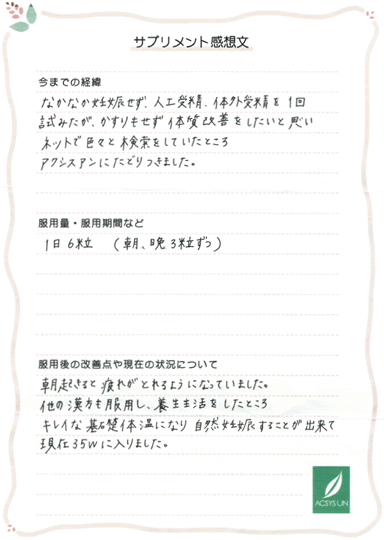 サプリメント感想文
今までの経緯
なかなか妊娠せず、人工受精、体外受精を1回
試みたが、かすりもせず体質改善をしたいと思い
ネットで色々と検索をしていたところ
アクシスアンにたどりつきました。
服用量・服用期間など
1日6粒 (朝、晩3粒ずつ)
服用後の改善点や現在の状況について
朝起きると疲れがとれるようになっていました。
他の漢方も服用し、養生生活をしたところ
キレイな基礎体温になり自然妊娠することが出来て
現在35Wに入りました。
ACSYS UN